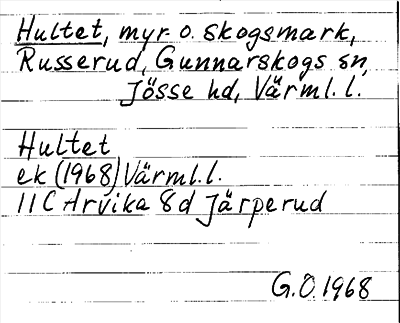 Hultet, myr o. skogsmark,
Russerud, Gunnarskogs sn,
Jösse hd, Värml. l.
Hultet
ek (1968) Värml. l.
11 C Arvika 8d Järperud
G.O. 1968